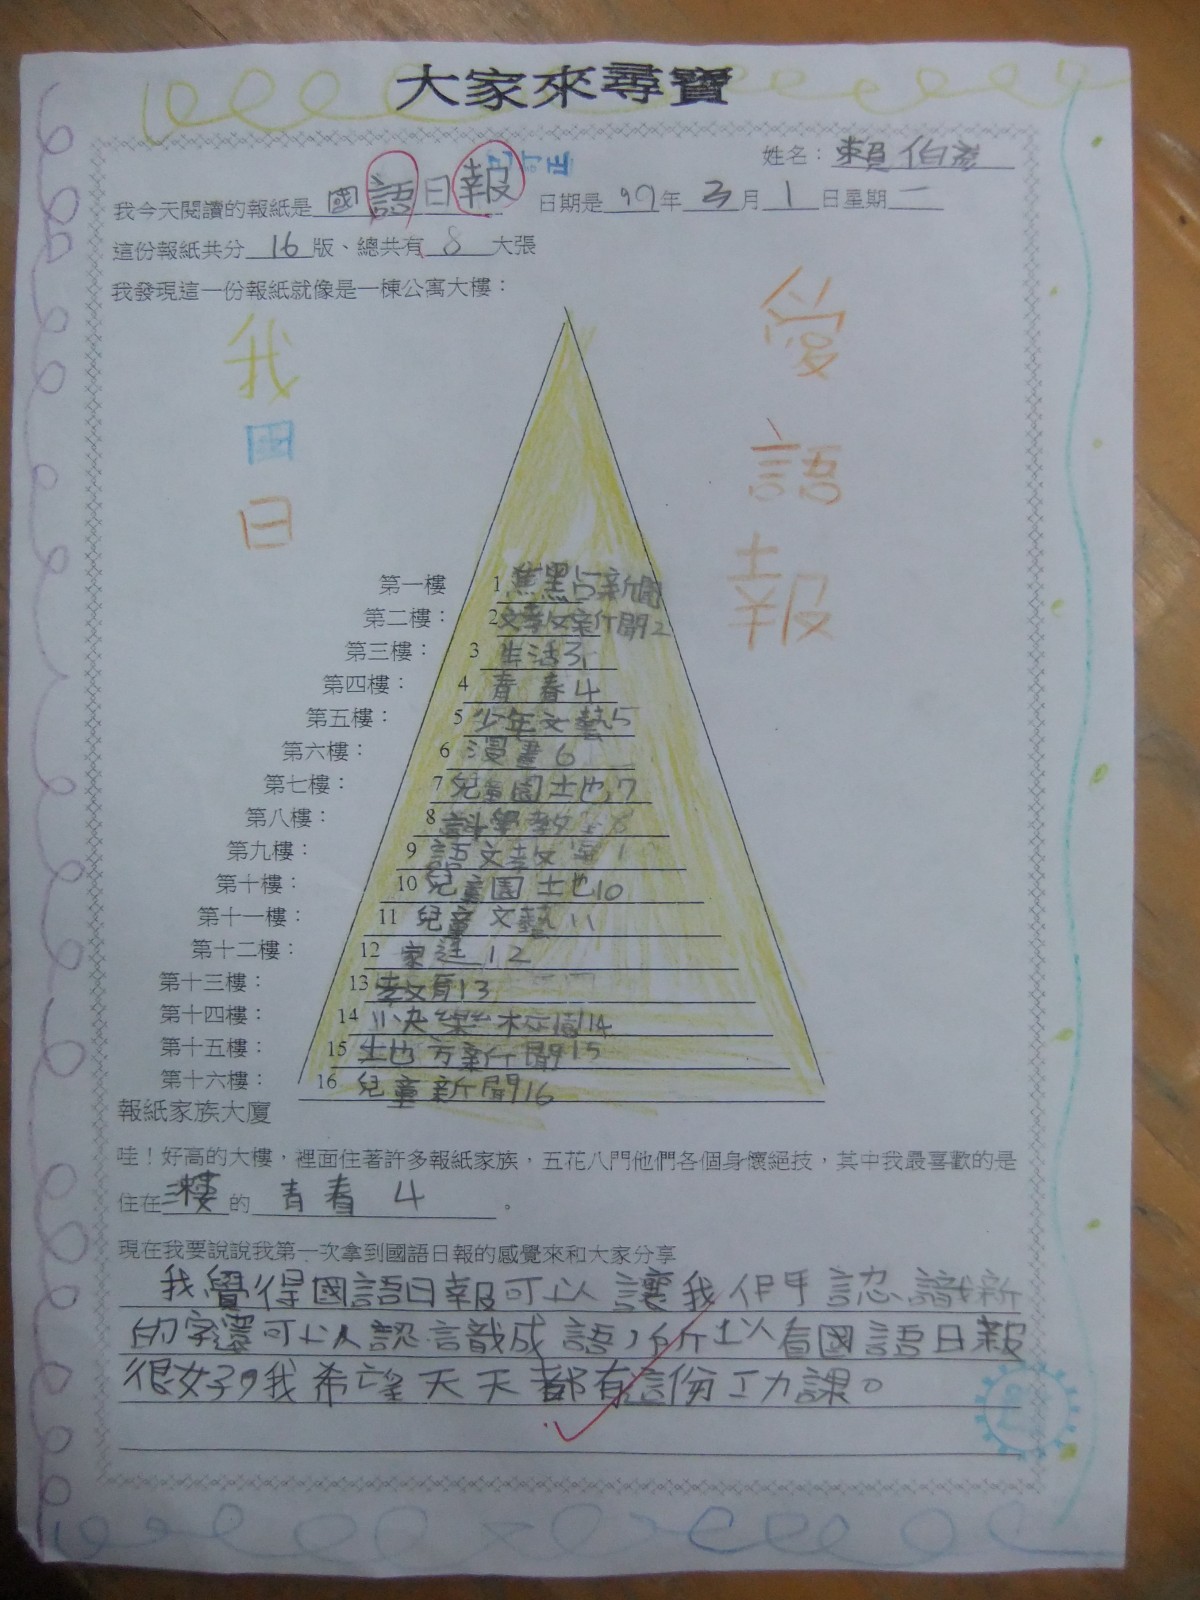 大家來尋寶
姓名：賴伯彥
已訂正
我今天閱讀的報紙是國語日報 日期是97年3月1日星期二
這份報紙共分16版、總共有8大張
我發現這一份報紙就像是一棟公寓大樓：
我愛
國語
日報
第一樓 1 焦點新聞
第二樓： 2 文教新聞2
第三樓： 3 生活3
第四樓： 4 青春4
第五樓： 5 少年文藝5
第六樓： 6 漫畫6
第七樓： 7 兒童園地7
第八樓： 8 科學教室8
第九樓： 9 語文教室
第十樓： 10 兒童園地10
第十一樓： 11 兒童文藝11
第十二樓： 12 家庭12
第十三樓： 13 教育13
第十四樓： 14 快樂校園14
第十五樓： 15 地方新聞15
第十六樓： 16 兒童新聞16
報紙家族大廈
哇！好高的大樓，裡面住著許多報紙家族，五花八門他們各個身懷絕技，其中我最喜歡的是
住在三樓的青春4。
現在我要說說我第一次拿到國語日報的感覺來和大家分享
我覺得國語日報可以讓我們認識新
的字還可以認識成語，所以看國語日報
很好，我希望天天都有這份功課。